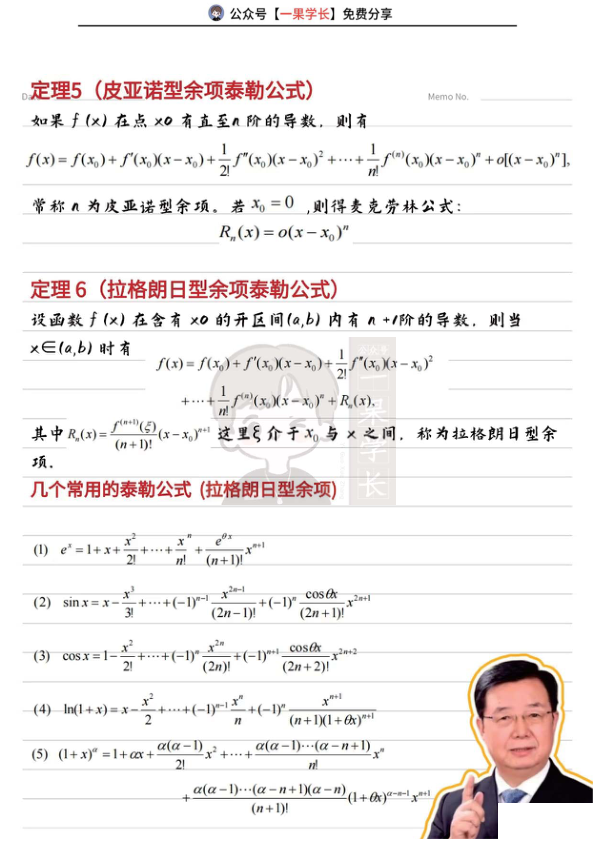 公众号【一果学长】免费分享
定理5（皮亚诺型余项泰勒公式）
Memo No.
如果 f (x) 在点 x0 有直至n 阶的导数，则有
f(x) = f(x₀) + f′(x₀)(x − x₀) + 1/2! f″(x₀)(x − x₀)² + ⋯ + 1/n! f⁽ⁿ⁾(x₀)(x − x₀)ⁿ + o[(x − x₀)ⁿ],
常称 n 为皮亚诺型余项。若 x₀ = 0 ,则得麦克劳林公式：
Rₙ(x) = o(x − x₀)ⁿ
定理 6（拉格朗日型余项泰勒公式）
设函数 f (x) 在含有 x0 的开区间(a,b) 内有 n +1阶的导数，则当
x∈(a,b) 时有
f(x) = f(x₀) + f′(x₀)(x − x₀) + 1/2! f″(x₀)(x − x₀)²
+ ⋯ + 1/n! f⁽ⁿ⁾(x₀)(x − x₀)ⁿ + Rₙ(x),
其中 Rₙ(x) = f⁽ⁿ⁺¹⁾(ξ)/(n+1)! (x − x₀)ⁿ⁺¹ 这里ξ 介于 x₀ 与 x 之间，称为拉格朗日型余
项。
公众号
一果学长
几个常用的泰勒公式 (拉格朗日型余项)
(1) eˣ = 1 + x + x²/2! + ⋯ + xⁿ/n! + e^(θx)/(n+1)! xⁿ⁺¹
(2) sin x = x − x³/3! + ⋯ + (−1)ⁿ⁻¹ x²ⁿ⁻¹/(2n−1)! + (−1)ⁿ cosθx/(2n+1)! x²ⁿ⁺¹
(3) cos x = 1 − x²/2! + ⋯ + (−1)ⁿ x²ⁿ/(2n)! + (−1)ⁿ⁺¹ cosθx/(2n+2)! x²ⁿ⁺²
(4) ln(1+x) = x − x²/2 + ⋯ + (−1)ⁿ⁻¹ xⁿ/n + (−1)ⁿ xⁿ⁺¹/((n+1)(1+θx)ⁿ⁺¹)
(5) (1+x)^α = 1 + αx + α(α−1)/2! x² + ⋯ + α(α−1)⋯(α−n+1)/n! xⁿ
+ α(α−1)⋯(α−n+1)(α−n)/(n+1)! (1+θx)^(α−n−1) xⁿ⁺¹